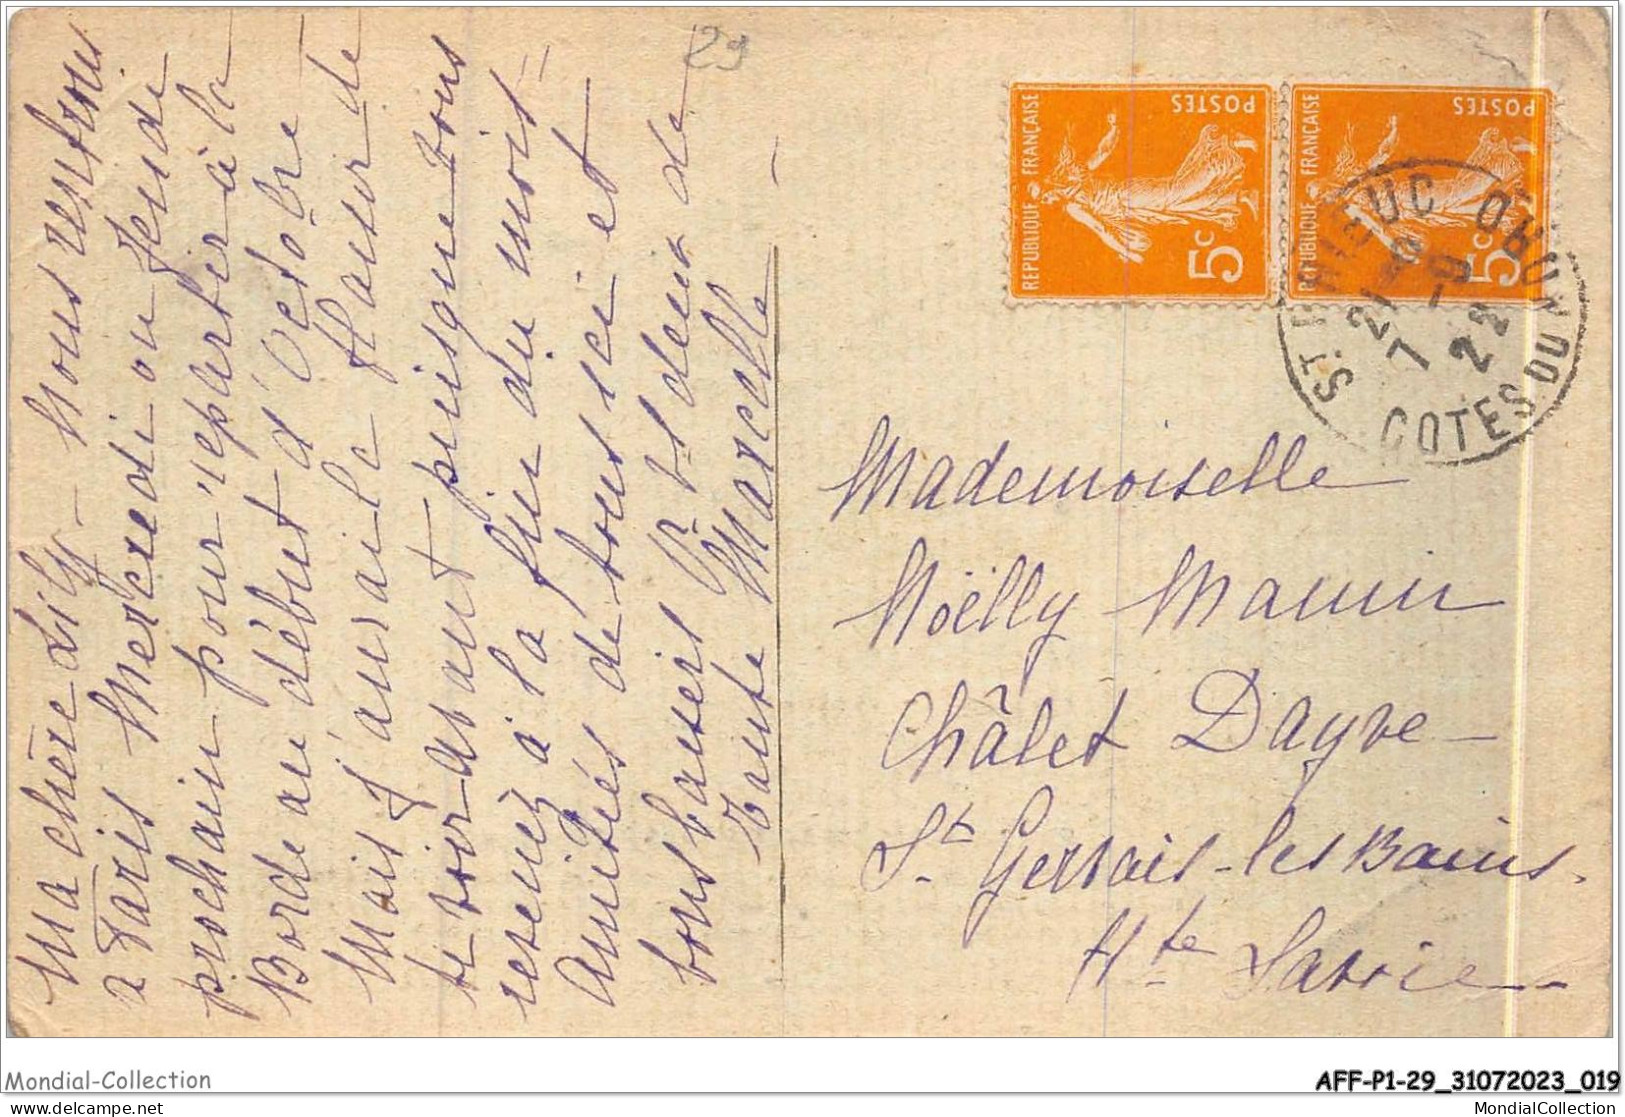 29
Ma chère Lily - Nous rentrons
à Paris Mercredi ou Jeudi
prochain pour repartir à la
Borde au début d'Octobre
Mais j'aurai le plaisir de
te voir avant puisque vous
revenez à la fin du mois -
Amitiés de tous ici et
bons baisers Pt deux de
Tante Marcelle -
REPUBLIQUE FRANÇAISE
POSTES
5c
REPUBLIQUE FRANÇAISE
POSTES
5c
ST BRIEUC
21
7 - 9
22
COTES DU NORD
Mademoiselle
Noëlly Mamin
Châlet Dayve -
St Gervais-les Bains.
Hte Savoie -
Mondial-Collection
AFF-P1-29_31072023_019
delcampe.net
MondialCollection